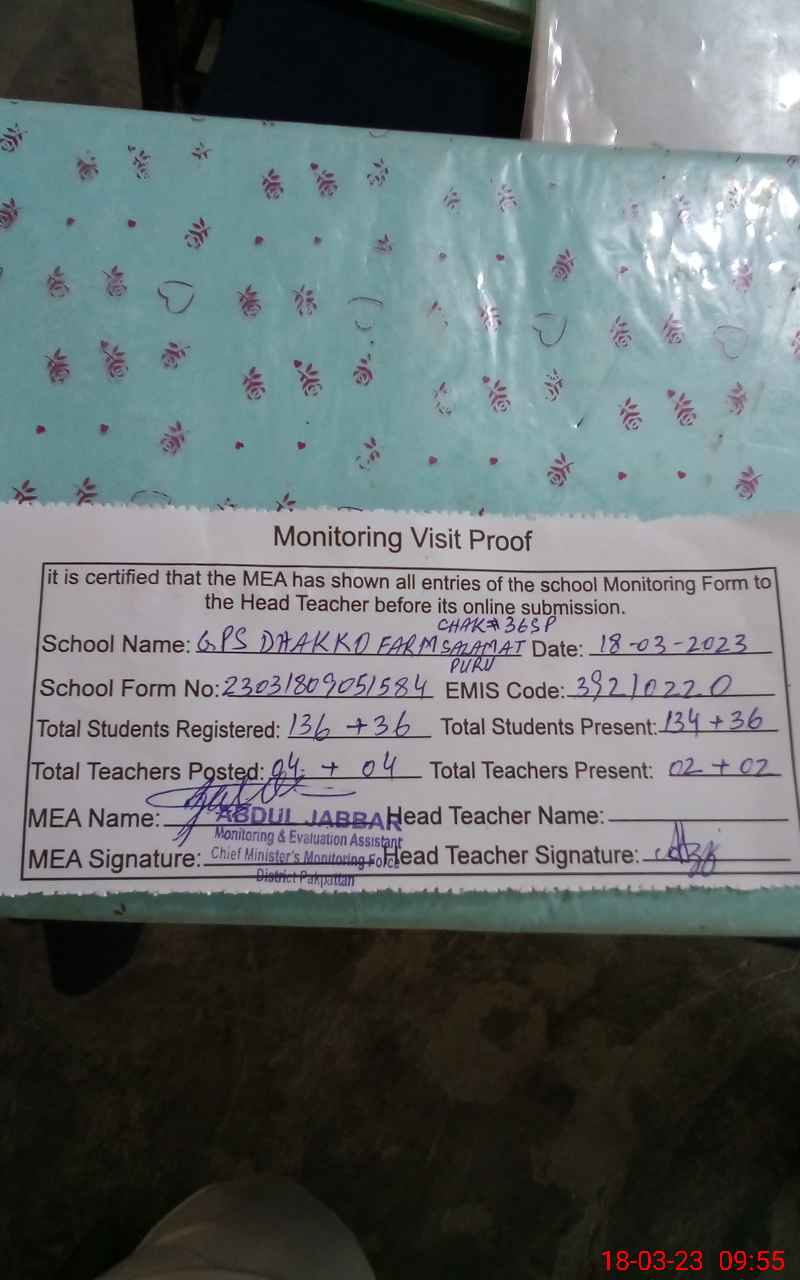 Monitoring Visit Proof
it is certified that the MEA has shown all entries of the school Monitoring Form to
the Head Teacher before its online submission.
CHAK# 36SP
School Name: GPS DHAKKO FARM SALAMAT Date: 18-03-2023
PURU
School Form No: 23031809051584 EMIS Code: 39210220
Total Students Registered: 136 + 36 Total Students Present: 134 + 36
Total Teachers Posted: 04 + 04 Total Teachers Present: 02 + 02
MEA Name: ABDUL JABBAR Head Teacher Name:
Monitoring & Evaluation Assistant
MEA Signature: Chief Minister's Monitoring Force Head Teacher Signature:
District Pakpattan
18-03-23 09:55